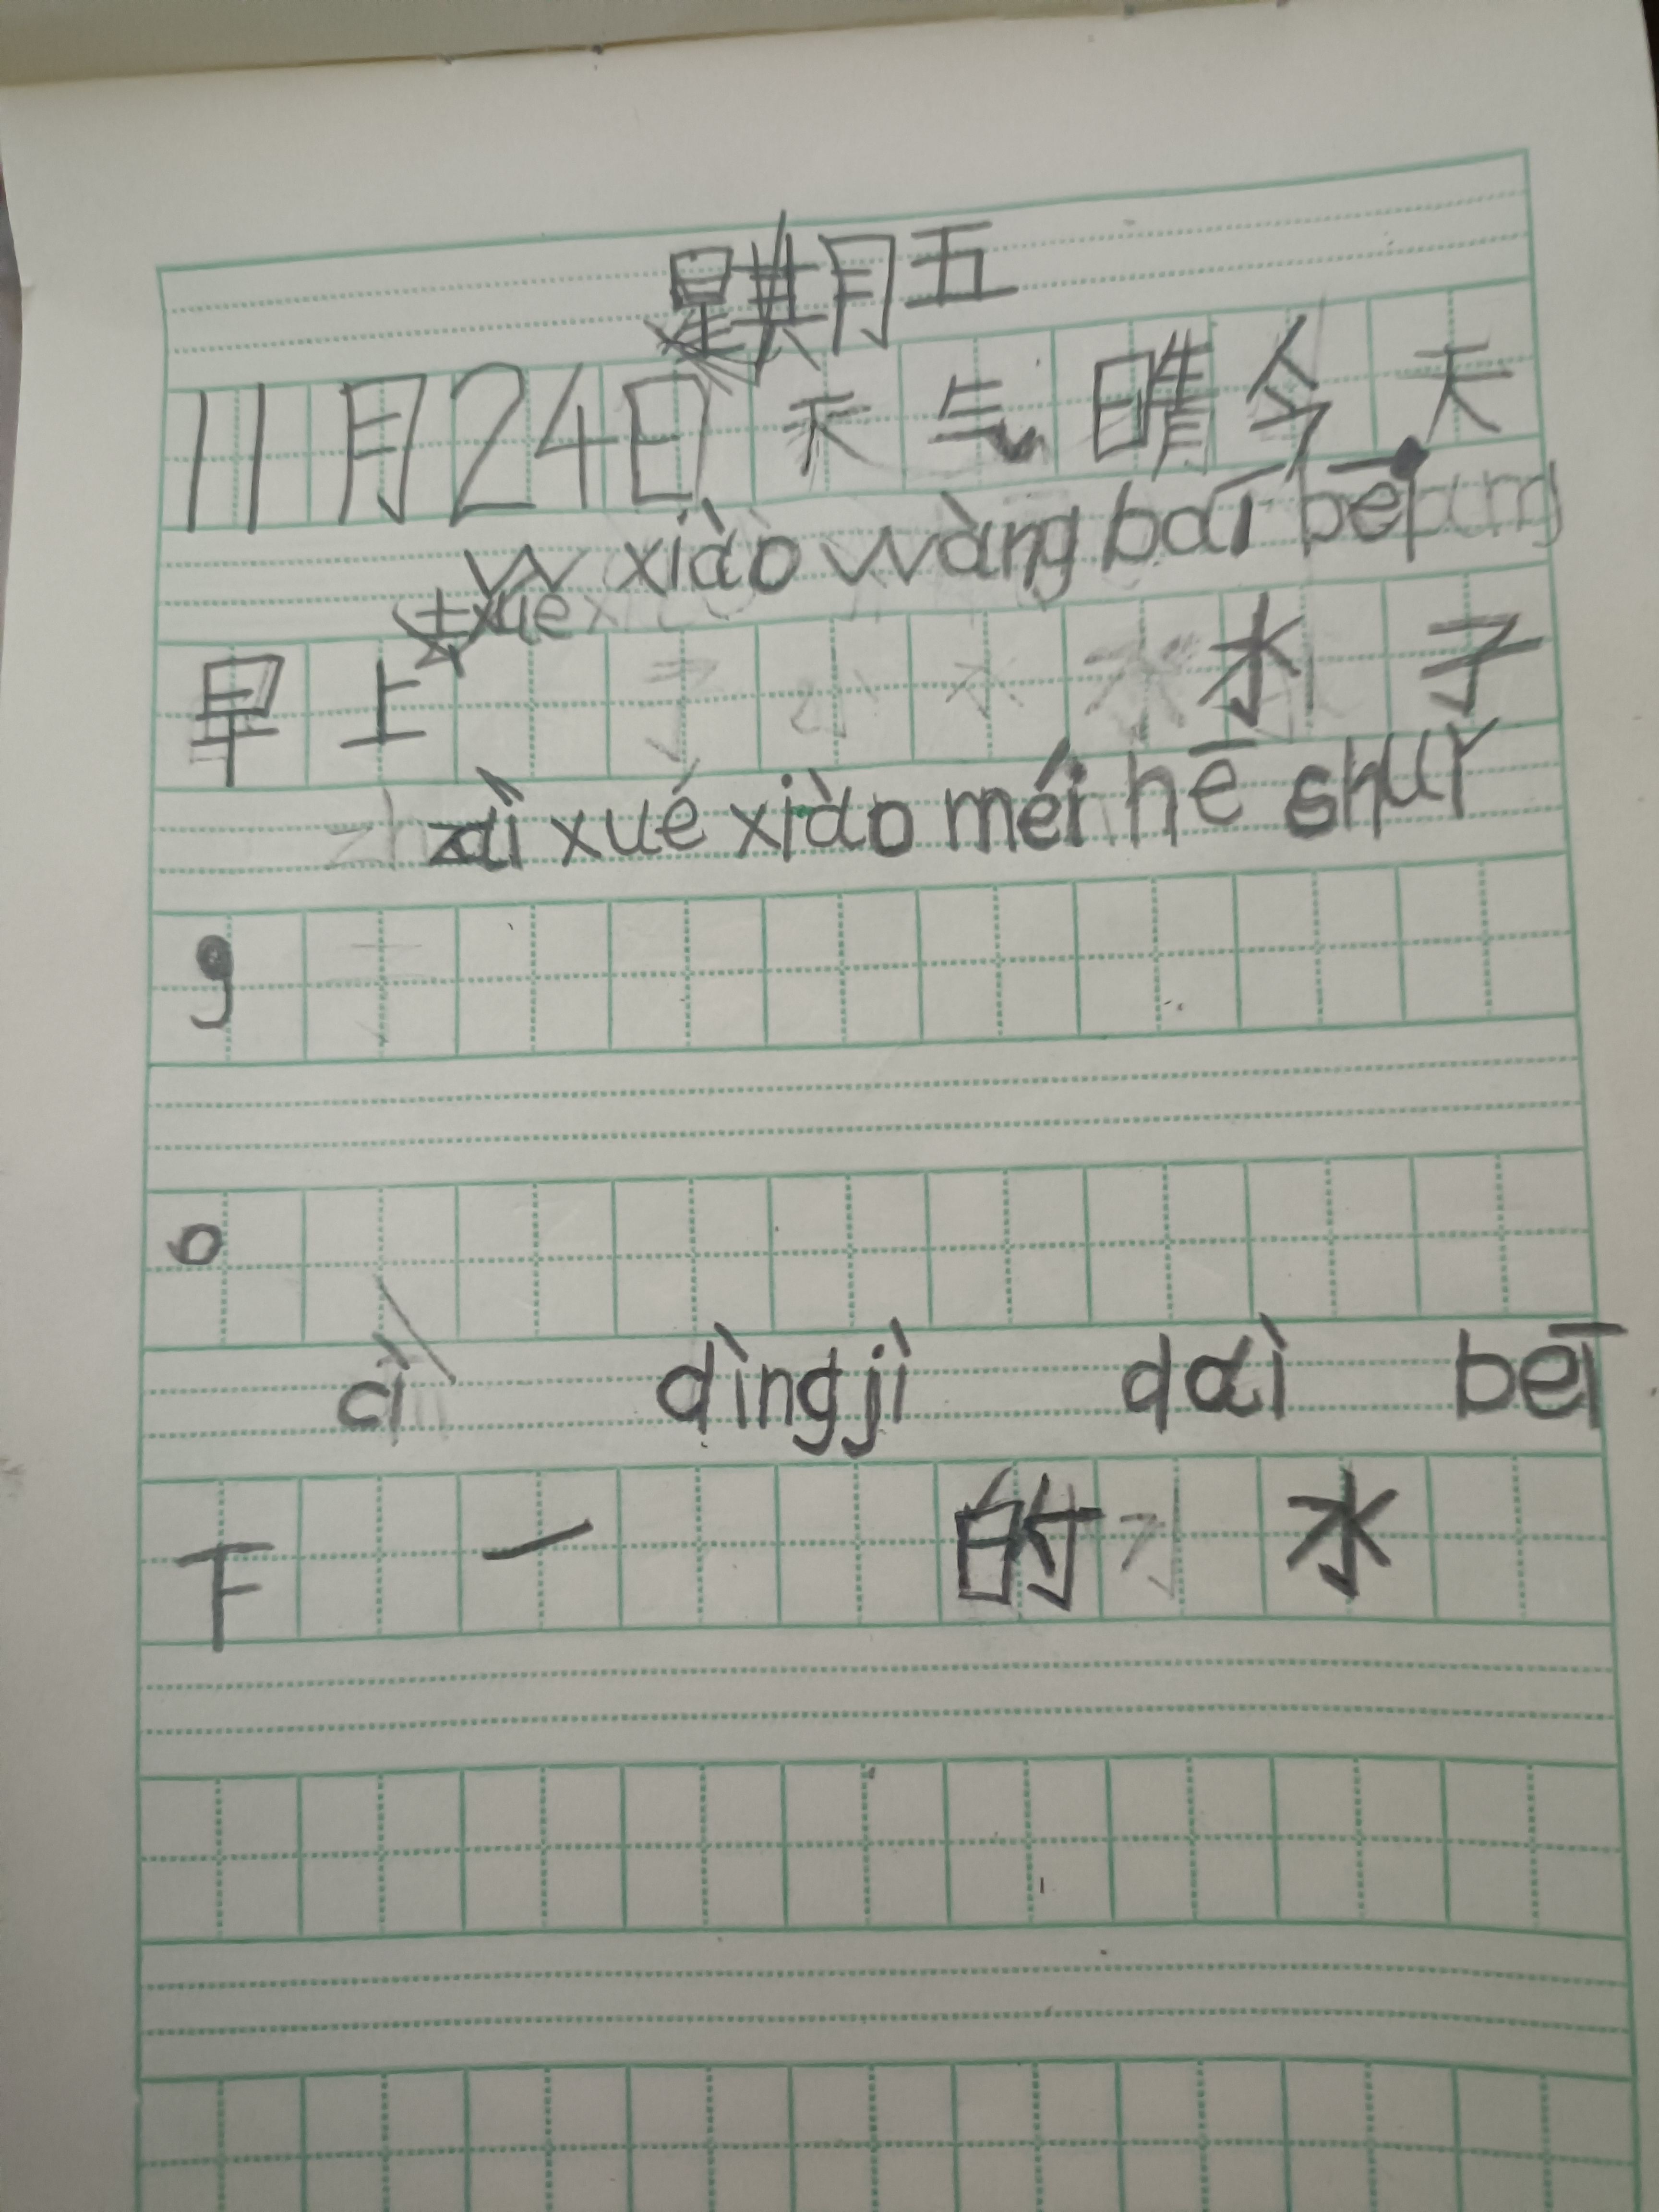 星期五
11月24日天气晴今天
xiào wàng bāi bēi
xuě
早上 水 子
zài xué xiào méi hē shuǐ
，
。
cì dìng jì dài bēi
下 一 的 水